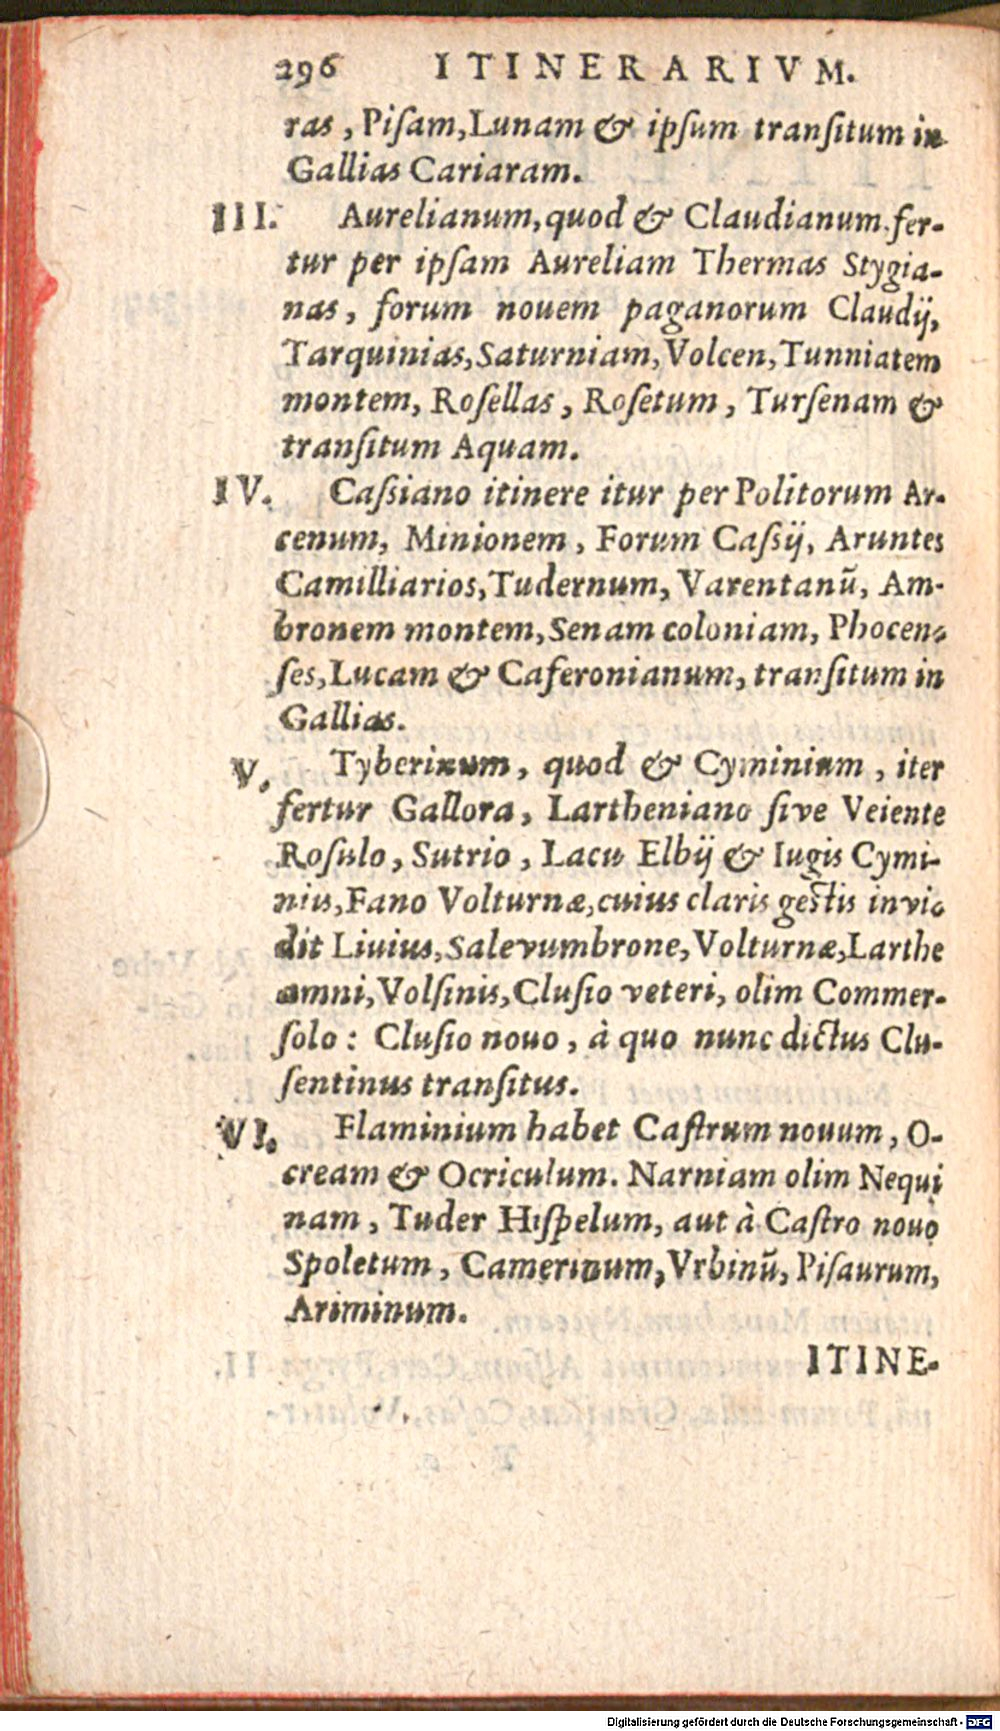 296 ITINERARIVM.
ras, Piſam, Lunam & ipſum tranſitum in
Gallias Cariaram.
III. Aurelianum, quod & Claudianum fer-
tur per ipſam Aureliam Thermas Stygia-
nas, forum nouem paganorum Claudij,
Tarquinias, Saturniam, Volcen, Tunniatem
montem, Roſellas, Roſetum, Turſenam &
tranſitum Aquam.
IV. Caſsiano itinere itur per Politorum Ar-
cenum, Minionem, Forum Caſsij, Aruntes
Camilliarios, Tudernum, Varentanũ, Am-
bronem montem, Senam coloniam, Phocen-
ſes, Lucam & Caferonianum, tranſitum in
Gallias.
V. Tyberinum, quod & Cyminium, iter
fertur Gallora, Lartheniano ſive Veiente
Roſulo, Sutrio, Lacu Elbij & Iugis Cymi-
niis, Fano Volturnæ, cuius claris geſtis invi-
dit Liuius, Salevumbrone, Volturnæ, Larthe
amni, Volſinis, Cluſio veteri, olim Commer-
ſolo: Cluſio nouo, à quo nunc dictus Clu-
ſentinus tranſitus.
VI. Flaminium habet Caſtrum nouum, O-
cream & Ocriculum. Narniam olim Nequi
nam, Tuder Hiſpelum, aut à Caſtro nouo
Spoletum, Camerinum, Vrbinũ, Piſaurum,
Ariminum.
ITINE-
Digitalisierung gefördert durch die Deutsche Forschungsgemeinschaft - DFG